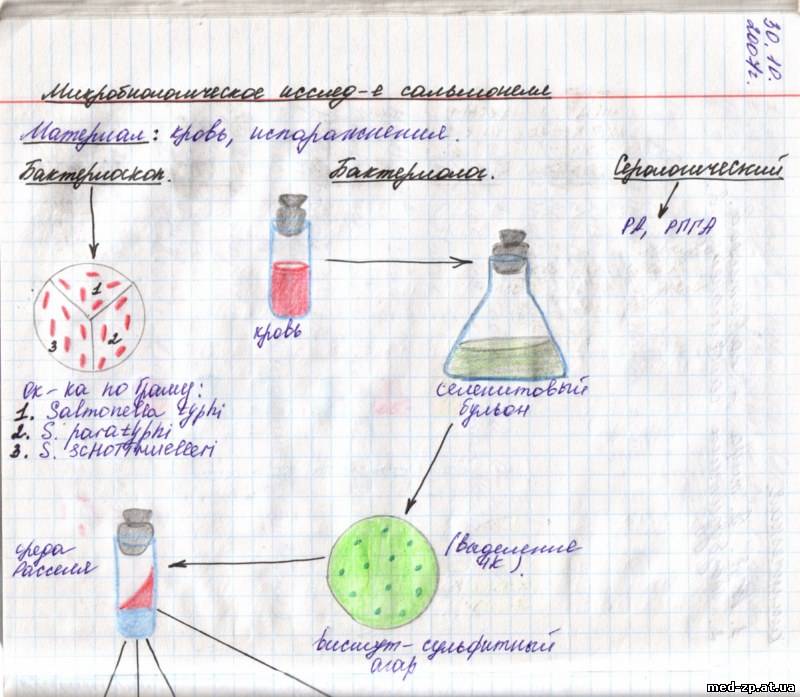 30.10.
2007г.
Микробиологическое исслед-е сальмонелл
Материал: кровь, испаражнения.
Бактериоскоп.
Бактериолог.
Серологический
РА, РПГА
1
2
3
кровь
селенитовый
бульон
ок-ка по Граму:
1. Salmonella typhi
2. S. paratyphi
3. S. schottmuelleri
среда
Расселя
(выделение
ЧК).
висмут-сульфитный
агар
med-zp.at.ua